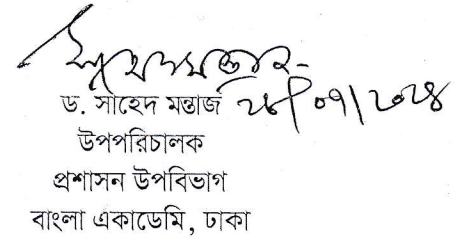 ড. সাহেদ মন্তাজ
উপপরিচালক
প্রশাসন উপবিভাগ
বাংলা একাডেমি, ঢাকা